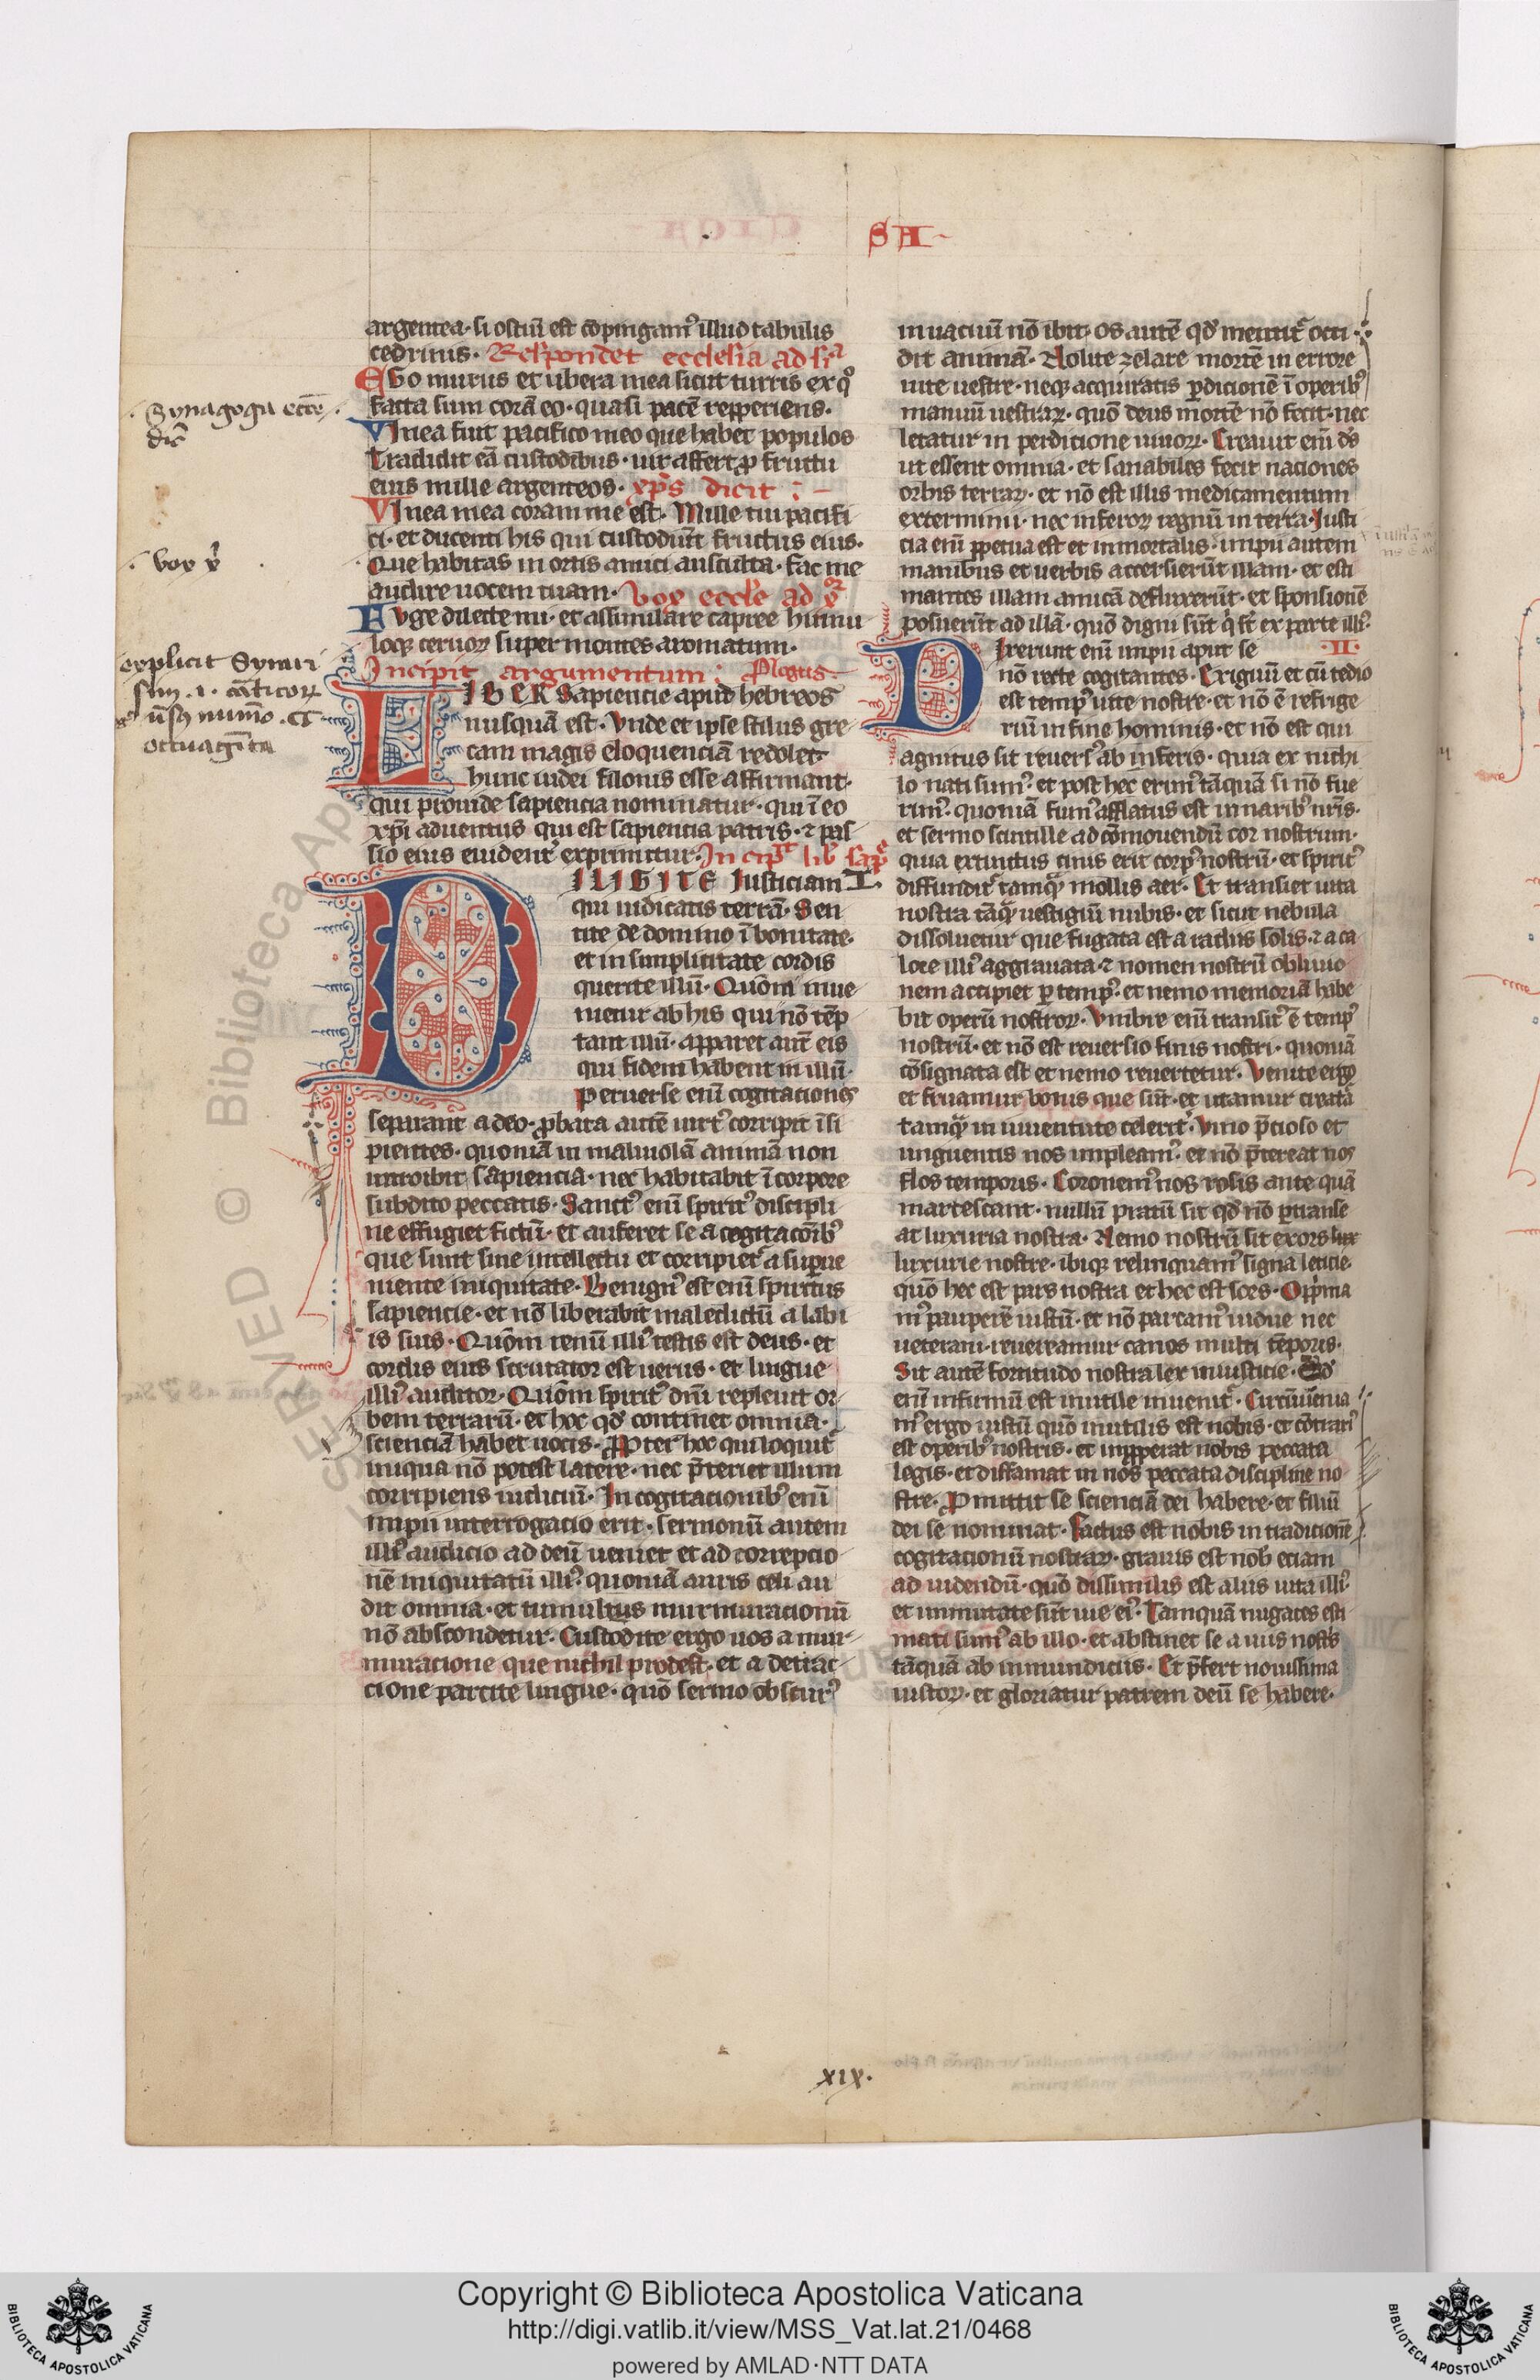 SA
argentea· si ostiū est cōpingamꝰ illud tabulis
cedrinis· Respondet ecclesia ad
EGo murus et ubera mea sicut turris ex qͦ
facta sum corā eo· quasi pacē repperiens·
VInea fuit pacifico meo que habet populos
Tradidit eā custodibus· uir affert ꝓ fructu
eius mille argenteos· xp̄s dicit :–
VInea mea coram me est· Mille tui pacifi
ci· et ducenti his qui custodiūt fructus eius·
Que habitas in ortis amici ausculta· fac me
audire uocem tuam· Vox eccl'e ad
FVge dilecte mi· et assimilare capree hinnu
loqꝫ ceruoꝝ super montes aromatum·
Incipit argumentum : Plogus
LIBER Sapiencie apud hebreos
nusquā est· Vnde et ipse stilus gre
cam magis eloquenciā redolet·
hunc iudei filonis esse affirmant·
qui proinde sapiencia nominatur· qui ī eo
xp̄i aduentus qui est sapientia patris· ⁊ pas
sio eius euidentꝰ exprimitur· Incip̄ lib' sap̄
DILIGITE Iusticiam I·
qui iudicatis terrā· Sen
tite de domino ī bonitate·
et in simplicitate cordis
querite illū· Quōm inue
nietur ab his qui nō tēp
tant illū· apparet aut̄ eis
qui fidem habent in illū·
Peruerse enī cogitationes
separant a deo· ꝓbata autē uirtꝰ corripit īsi
pientes· quoniā in maliuolā animā non
introibit sapiencia· nec habitabit ī corpore
subdito peccatis· Sanctꝰ enī spiritꝰ discipli
ne effugiet fictū· et auferet se a cogitacōībꝰ
que sunt sine intellectu et corripietᷣ a suꝑue
niente iniquitate· Benignꝰ est enī spiritus
sapiencie· et nō liberabit maledictū a labi
is suis· Quōm renū illiꝰ testis est deus· et
cordis eius scrutator est uerus· et lingue
illiꝰ auditor· Quōm spiritꝰ dn̄i repleuit or
bem terrarū· et hoc qd' continet omnia·
scienciā habet uocis· Ꝓpter hoc qui loquitᷣ
iniqua nō potest latere· nec p̄teriet illum
corripiens iudiciū· In cogitacionibꝰ enī
impii interrogacio erit· sermonū autem
illiꝰ audicio ad deū ueniet et ad correpcio
nē iniquitatū illiꝰ· quoniā auris celi au
dit omnia· et tumultus murmuracionū
nō abscondetur· Custodite ergo uos a mur
muracione que nichil prodest· et a detrac
cione parcite lingue· quō sermo obscurꝰ
in uacuū nō ibit· os autē qd' mentitᷣ occi
dit animā· Nolite zelare mortē in errore
uite uestre· neqꝫ acquiratis ꝑdicionē ī operibꝰ
manuū uestraꝝ· quō deus mortē nō fecit· nec
letatur in perdicione uiuoꝝ· Creauit enī ds̄
ut essent omnia· et sanabiles fecit naciones
orbis terraꝝ· et nō est illis medicamentum
exterminii· nec inferoꝝ regnū in terra· Iusti
cia enī ꝑpetua est et inmortalis· impii autem
manibus et uerbis accersierūt illam· et esti
mantes illam amicā defluxerūt· et sponsionē
posuerūt ad illā· quō digni sūt q̇ sūt ex parte illiꝰ·
DIxerunt enī impii aput se ·II·
nō recte cogitantes· Exiguū et cū tedio
est tempꝰ uite nostre· et nō ē refrige
riū in fine hominis· et nō est qui
agnitus sit reuersꝰ ab inferis· quia ex nichi
lo nati sumꝰ· et post hec erimꝰ tāquā si nō fue
rimꝰ· quoniā fumꝰ afflatus est in naribꝰ nr̄is·
et sermo scintille ad cōmouendū cor nostrum·
quia extinctus cinis erit corpꝰ nostrū· et spiritꝰ
diffundetᷣ tamqᷓ mollis aer· Et transiet uita
nostra tāqᷓ uestigiū nubis· et sicut nebula
dissoluetur que fugata est a radiis solis· ⁊ a ca
lore illiꝰ aggrauata· ⁊ nomen nostrū obliuio
nem accipiet ꝑ tempꝰ· et nemo memoriā habe
bit operū nostroꝝ· Vmbre enī transitꝰ ē tempꝰ
nostrū· et nō est reuersio finis nostri· quoniā
cōsignata est et nemo reuertetur· Venite ergo
et fruamur bonis que sūt· et utamur creatā
tamqᷓ in iuuentute celeritᷣ· Vino p̄cioso et
unguentis nos impleamꝰ· et nō p̄tereat nos
flos temporis· Coronemꝰ nos rosis ante quā
martescant· nullū pratū sit qd' nō ꝑtranse
at luxuria nostra· Nemo nostrū sit exors lux
luxurie nostre· ibiqꝫ relinquamꝰ signa leticie·
quō hec est pars nostra et hec est sors· Opp̄ma
mꝰ pauperē iustū· et nō parcamꝰ uidue nec
ueterani· reuereamur canos multi tēporis·
Sit autē fortitudo nostra lex iniusticie· Qd'
enī infirmū est inutile inuenitᷣ· Circūuēnia
mꝰ ergo iustū quō inutilis est nobis· et cōtrariꝰ
est operibꝰ nostris· et inꝓperat nobis peccata
legis· et diffamat in nos peccata discipline no
stre· Ꝓmittit se scienciā dei habere· et filiū
dei se nominat· Factus est nobis in tradicionē
cogitacionū nostraꝝ· grauis est nob' eciam
ad uidendū· quō dissimilis est aliis uita illiꝰ·
et inmutate sūt uie eiꝰ· Tamquā nugaces esti
mati sumꝰ ab illo· et abstinet se a uiis nostris
tāquā ab inmundiciis· Et p̄fert nouissima
iustoꝝ· et gloriatur patrem deū se habere·
· Synagoga
dic̄
· vox
explicit
xix·
© Biblioteca Ap
Copyright © Biblioteca Apostolica Vaticana
http://digi.vatlib.it/view/MSS_Vat.lat.21/0468
powered by AMLAD·NTT DATA
BIBLIOTECA APOSTOLICA VATICANA
BIBLIOTECA APOSTOLICA VATICANA